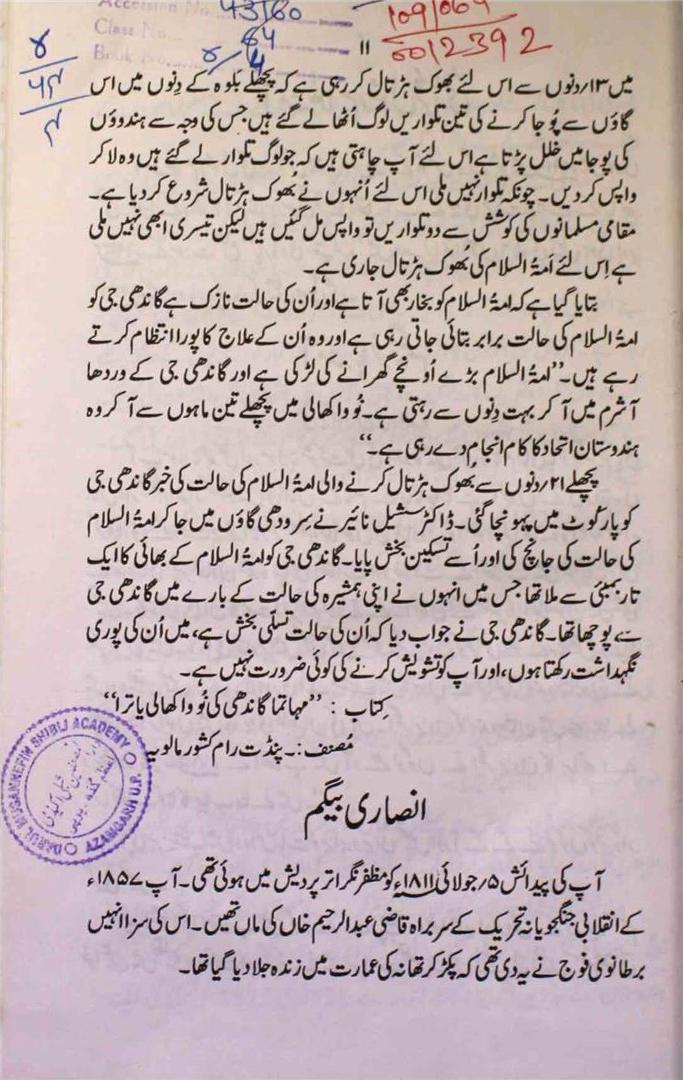 Accession No.
43/60
109/064
Class No.
64
0012392
Book No.
۱۱
میں ۱۳؍دنوں سے اس لئے بھوک ہڑتال کر رہی ہے کہ پچھلے بلوہ کے دِنوں میں اس
گاؤں سے پُوجا کرنے کی تین تلواریں لوگ اُٹھالے گئے ہیں جس کی وجہ سے ہندوؤں
کی پوجا میں خلل پڑتا ہے اس لئے آپ چاہتی ہیں کہ جو لوگ تلوار لے گئے ہیں وہ لا کر
واپس کردیں۔ چونکہ تلوار نہیں ملی اس لئے اُنہوں نے بُھوک ہڑتال شروع کردیا ہے۔
مقامی مسلمانوں کی کوشش سے دو تلواریں تو واپس مل گئیں ہیں لیکن تیسری ابھی نہیں ملی
ہے اِس لئے اَمۃ السلام کی بُھوک ہڑتال جاری ہے۔
بتایا گیا ہے کہ امۃ السلام کو بخار بھی آتا ہے اور اُن کی حالت نازک ہے گاندھی جی کو
امۃ السلام کی حالت برابر بتائی جاتی رہی ہے اور وہ اُن کے علاج کا پورا انتظام کرتے
رہے ہیں۔ ”امۃ السلام بڑے اُونچے گھرانے کی لڑکی ہے اور گاندھی جی کے وردھا
آشرم میں آ کر بہت دِنوں سے رہتی ہے۔ نُواکھالی میں پچھلے تین ماہوں سے آ کر وہ
ہندوستان اتحاد کا کام انجام دے رہی ہے۔“
پچھلے ۲۱؍دنوں سے بُھوک ہڑتال کرنے والی امۃ السلام کی حالت کی خبر گاندھی جی
کو پارکوٹ میں پہونچا گئی۔ ڈاکٹر سشیل نائیر نے سرودھی گاؤں میں جا کر امۃ السلام
کی حالت کی جانچ کی اور اُسے تسکین بخش پایا۔ گاندھی جی کو امۃ السلام کے بھائی کا ایک
تار بمبئی سے ملا تھا جس میں انہوں نے اپنی ہمشیرہ کی حالت کے بارے میں گاندھی جی
سے پوچھا تھا۔ گاندھی جی نے جواب دیا کہ اُن کی حالت تسلّی بخش ہے، میں اُن کی پوری
نگہداشت رکھتا ہوں، اور آپ کو تشویش کرنے کی کوئی ضرورت نہیں ہے۔
کِتاب : ”مہاتما گاندھی کی نُواکھالی یاترا“
مصنف :۔ پنڈت رام کشور مالویہ
DARUL MUSANNEFIN SHIBLI ACADEMY
AZAMGARH U.P.
انصاری بیگم
آپ کی پیدائش ۵؍جولائی ۱۸۱۱ء کو مظفر نگر اتر پردیش میں ہوئی تھی۔ آپ ۱۸۵۷ء
کے انقلابی جنگجویانہ تحریک کے سربراہ قاضی عبدالرحیم خاں کی ماں تھیں۔ اس کی سزا انہیں
برطانوی فوج نے یہ دی تھی کہ پکڑ کر تھانہ کی عمارت میں زندہ جلا دیا گیا تھا۔